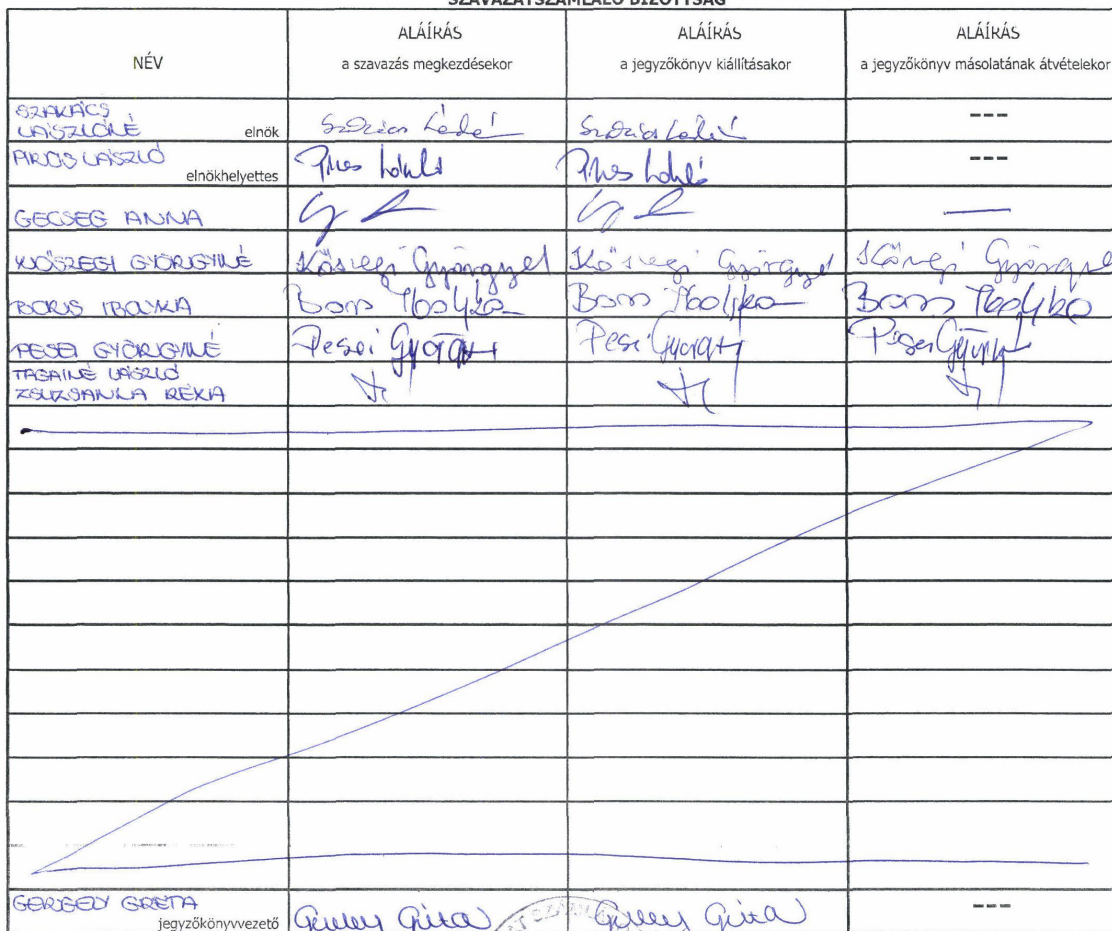 SZAVAZATSZÁMLÁLÓ BIZOTTSÁG
NÉV
ALÁÍRÁS
a szavazás megkezdésekor
ALÁÍRÁS
a jegyzőkönyv kiállításakor
ALÁÍRÁS
a jegyzőkönyv másolatának átvételekor
SZAKÁCS
LÁSZLÓNÉ elnök
---
PIROS LÁSZLÓ
elnökhelyettes
---
GECSEG ANNA
KŐSZEGI GYÖRGYNÉ Kőszegi Györgyné Kőszegi Györgyné Kőszegi Györgyné
BOROS IBOLYKA Boros Ibolyka Boros Ibolyka Boros Ibolyka
PESEI GYÖRGYNÉ Pesei Pesei Pesei
TAGAINÉ LÁSZLÓ
ZSUZSANNA RÉKA
GERGELY GRÉTA
jegyzőkönyvvezető Gréta Gréta ---